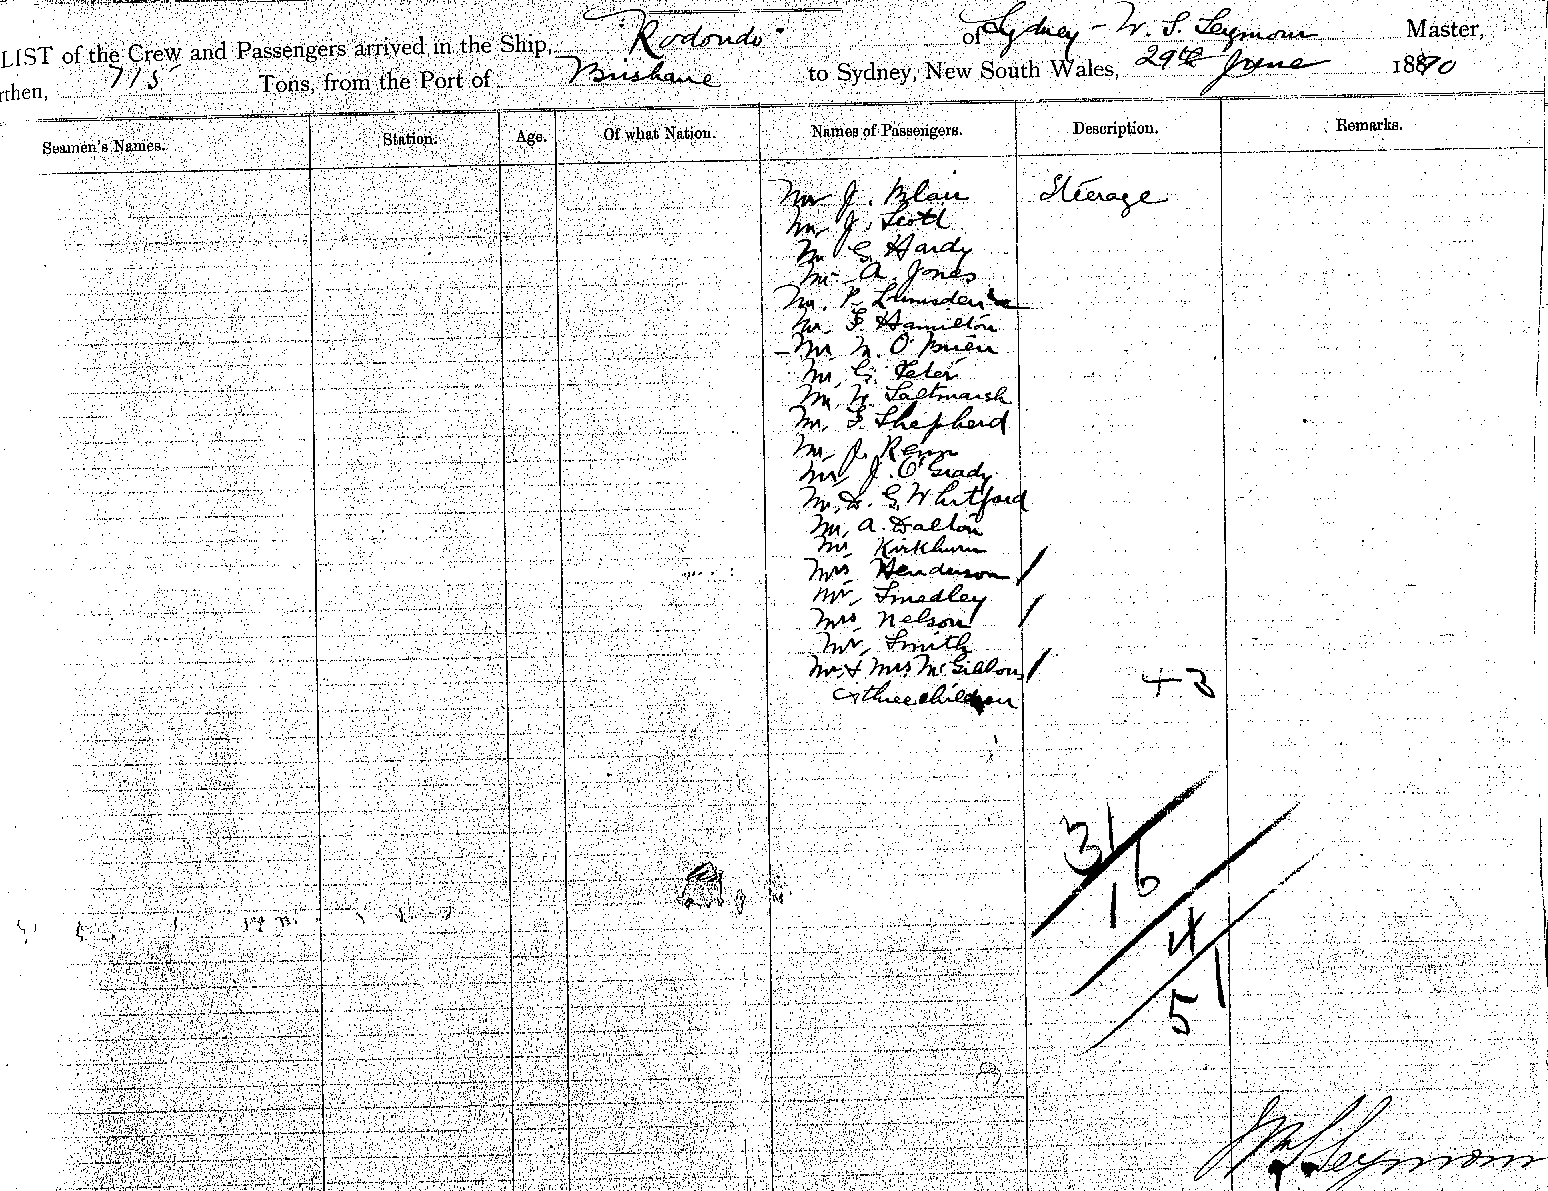 LIST of the Crew and Passengers arrived in the Ship, "Rodondo" of Sydney - W. S. Seymour Master,
rthen, 715 Tons, from the Port of Brisbane to Sydney, New South Wales, 29th June 1890
Seamen's Names. Station. Age. Of what Nation. Names of Passengers. Description. Remarks.
Mr J. Blair Steerage
Mr J. Scott
Mr G. Hardy
Mr A. Jones
Mr. P. Lumsden
Mr. F. Hamilton
Mr M. O'Brien
Mr. G. Peter
Mr. Saltmarsh
Mr. F. Shepherd
Mr. J. Renn
Mr J. O'Grady
Mr. G. Whitford
Mr. A. Dalton
Mr Kirkburn
Mrs Henderson /
Mr. Smedley
Mrs Nelson /
Mr. Smith
Mr & Mrs McGibbon /
& three children + 3
31
16
4
51
Wm S Seymour